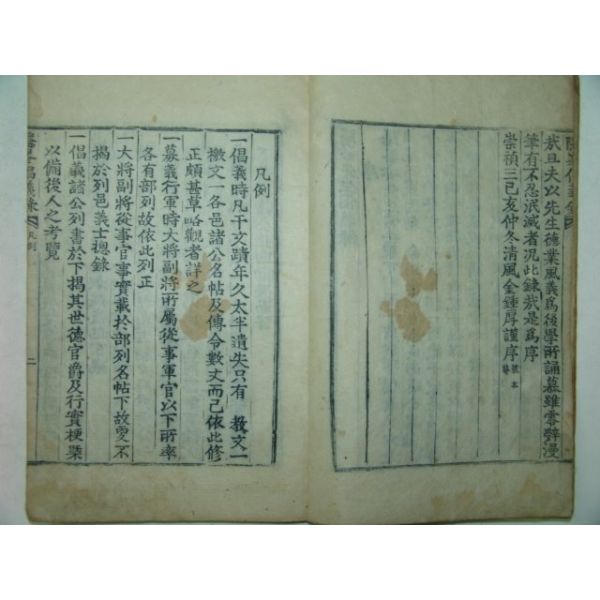 哉且夫以先生德業風義爲後學所誦慕雖零辭漫
筆有不忍泯滅者況此錄哉是爲序
崇禎三己亥仲冬淸風金鍾厚謹序
凡例
一倡義時凡干文蹟年久太半遺失只有 敎文一
檄文一各邑諸公名帖及傳令數文而已依此修
正頗甚草略觀者詳之
一募義行軍時大將副將所屬從事軍官以下所率
各有部列故依此列正
一大將副將從事官事實載於部列名帖下故更不
揭於列邑義士總錄
一倡義諸公列書於下揭其世德官爵及行實梗槩
以備後人之考覽
凡例
二